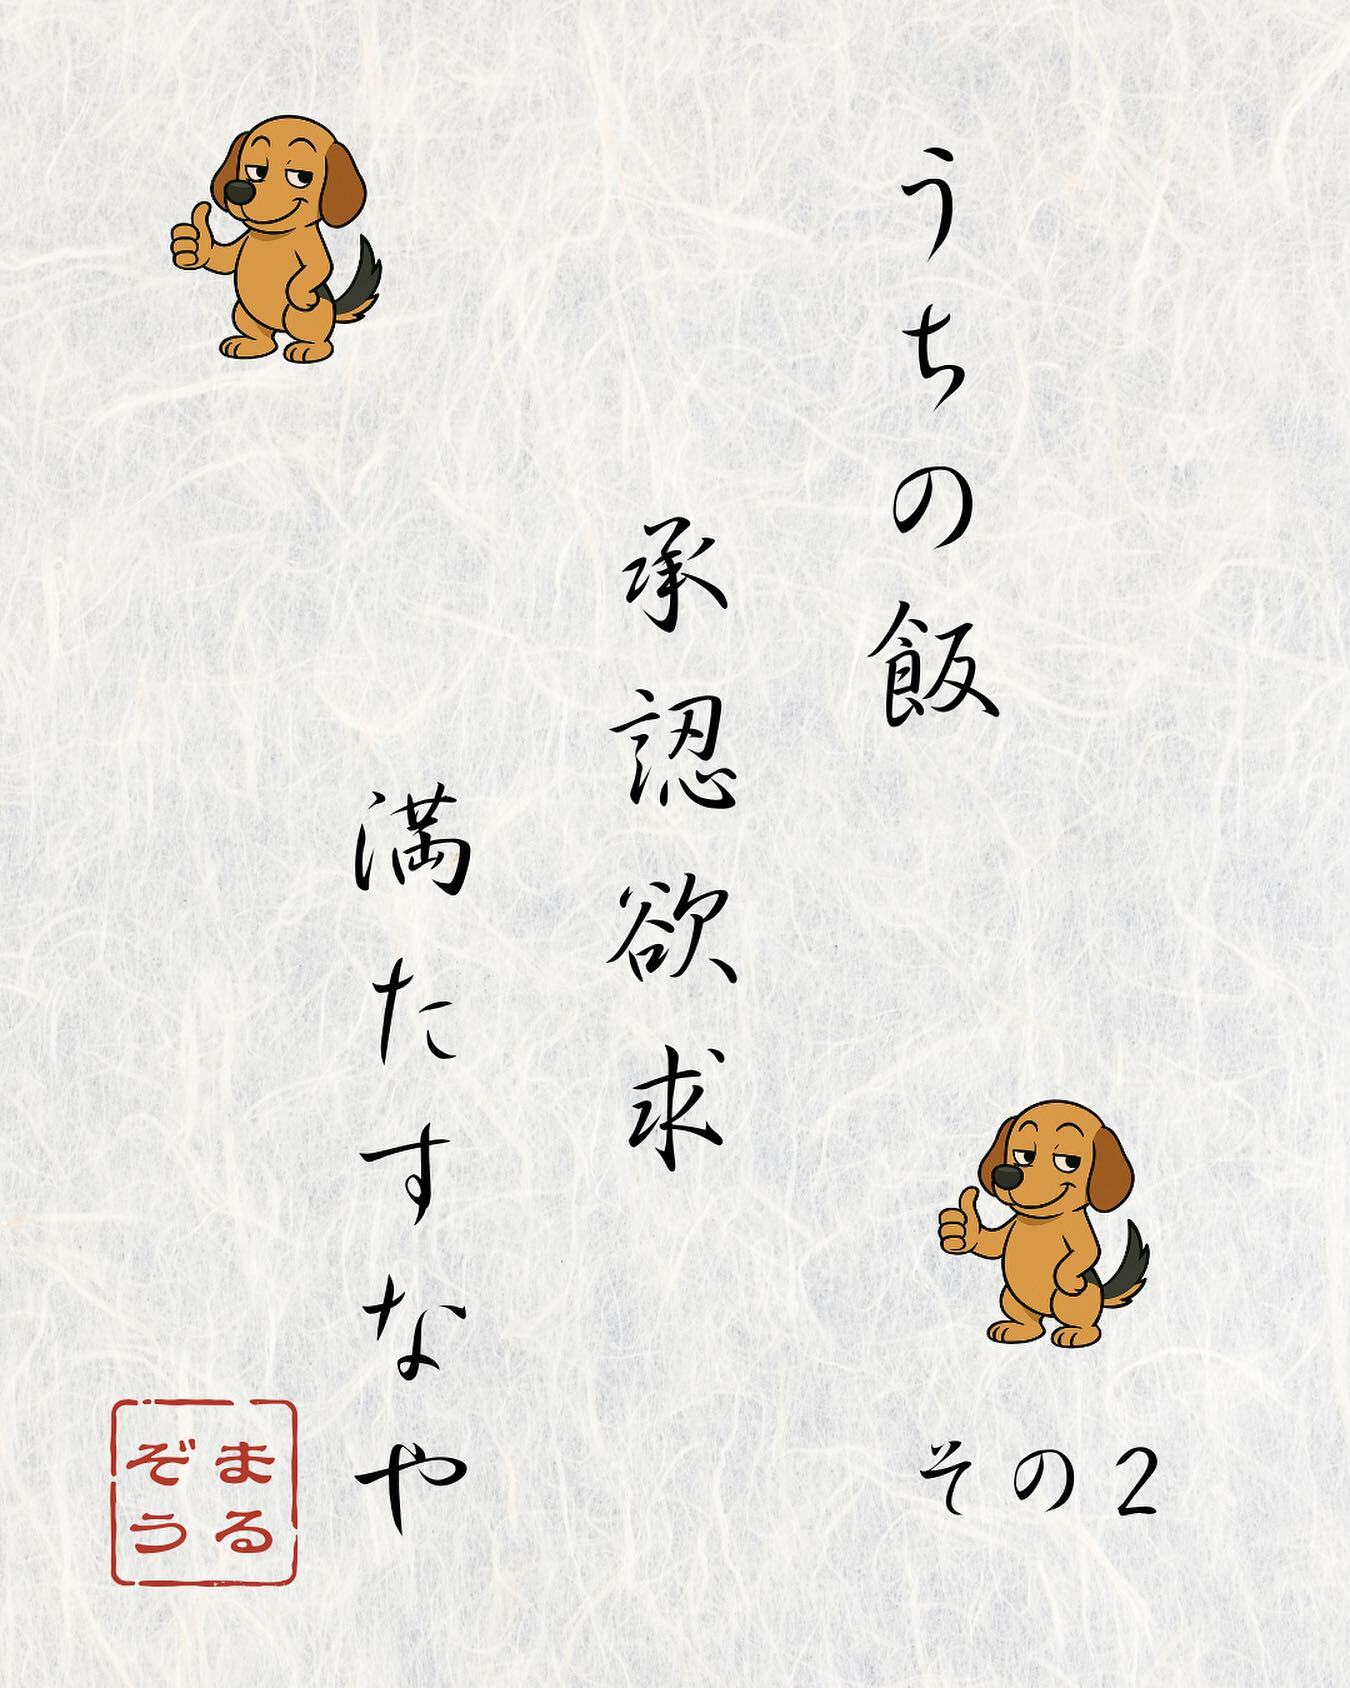 うちの飯
承認欲求
満たすなや
その２
まる
ぞう